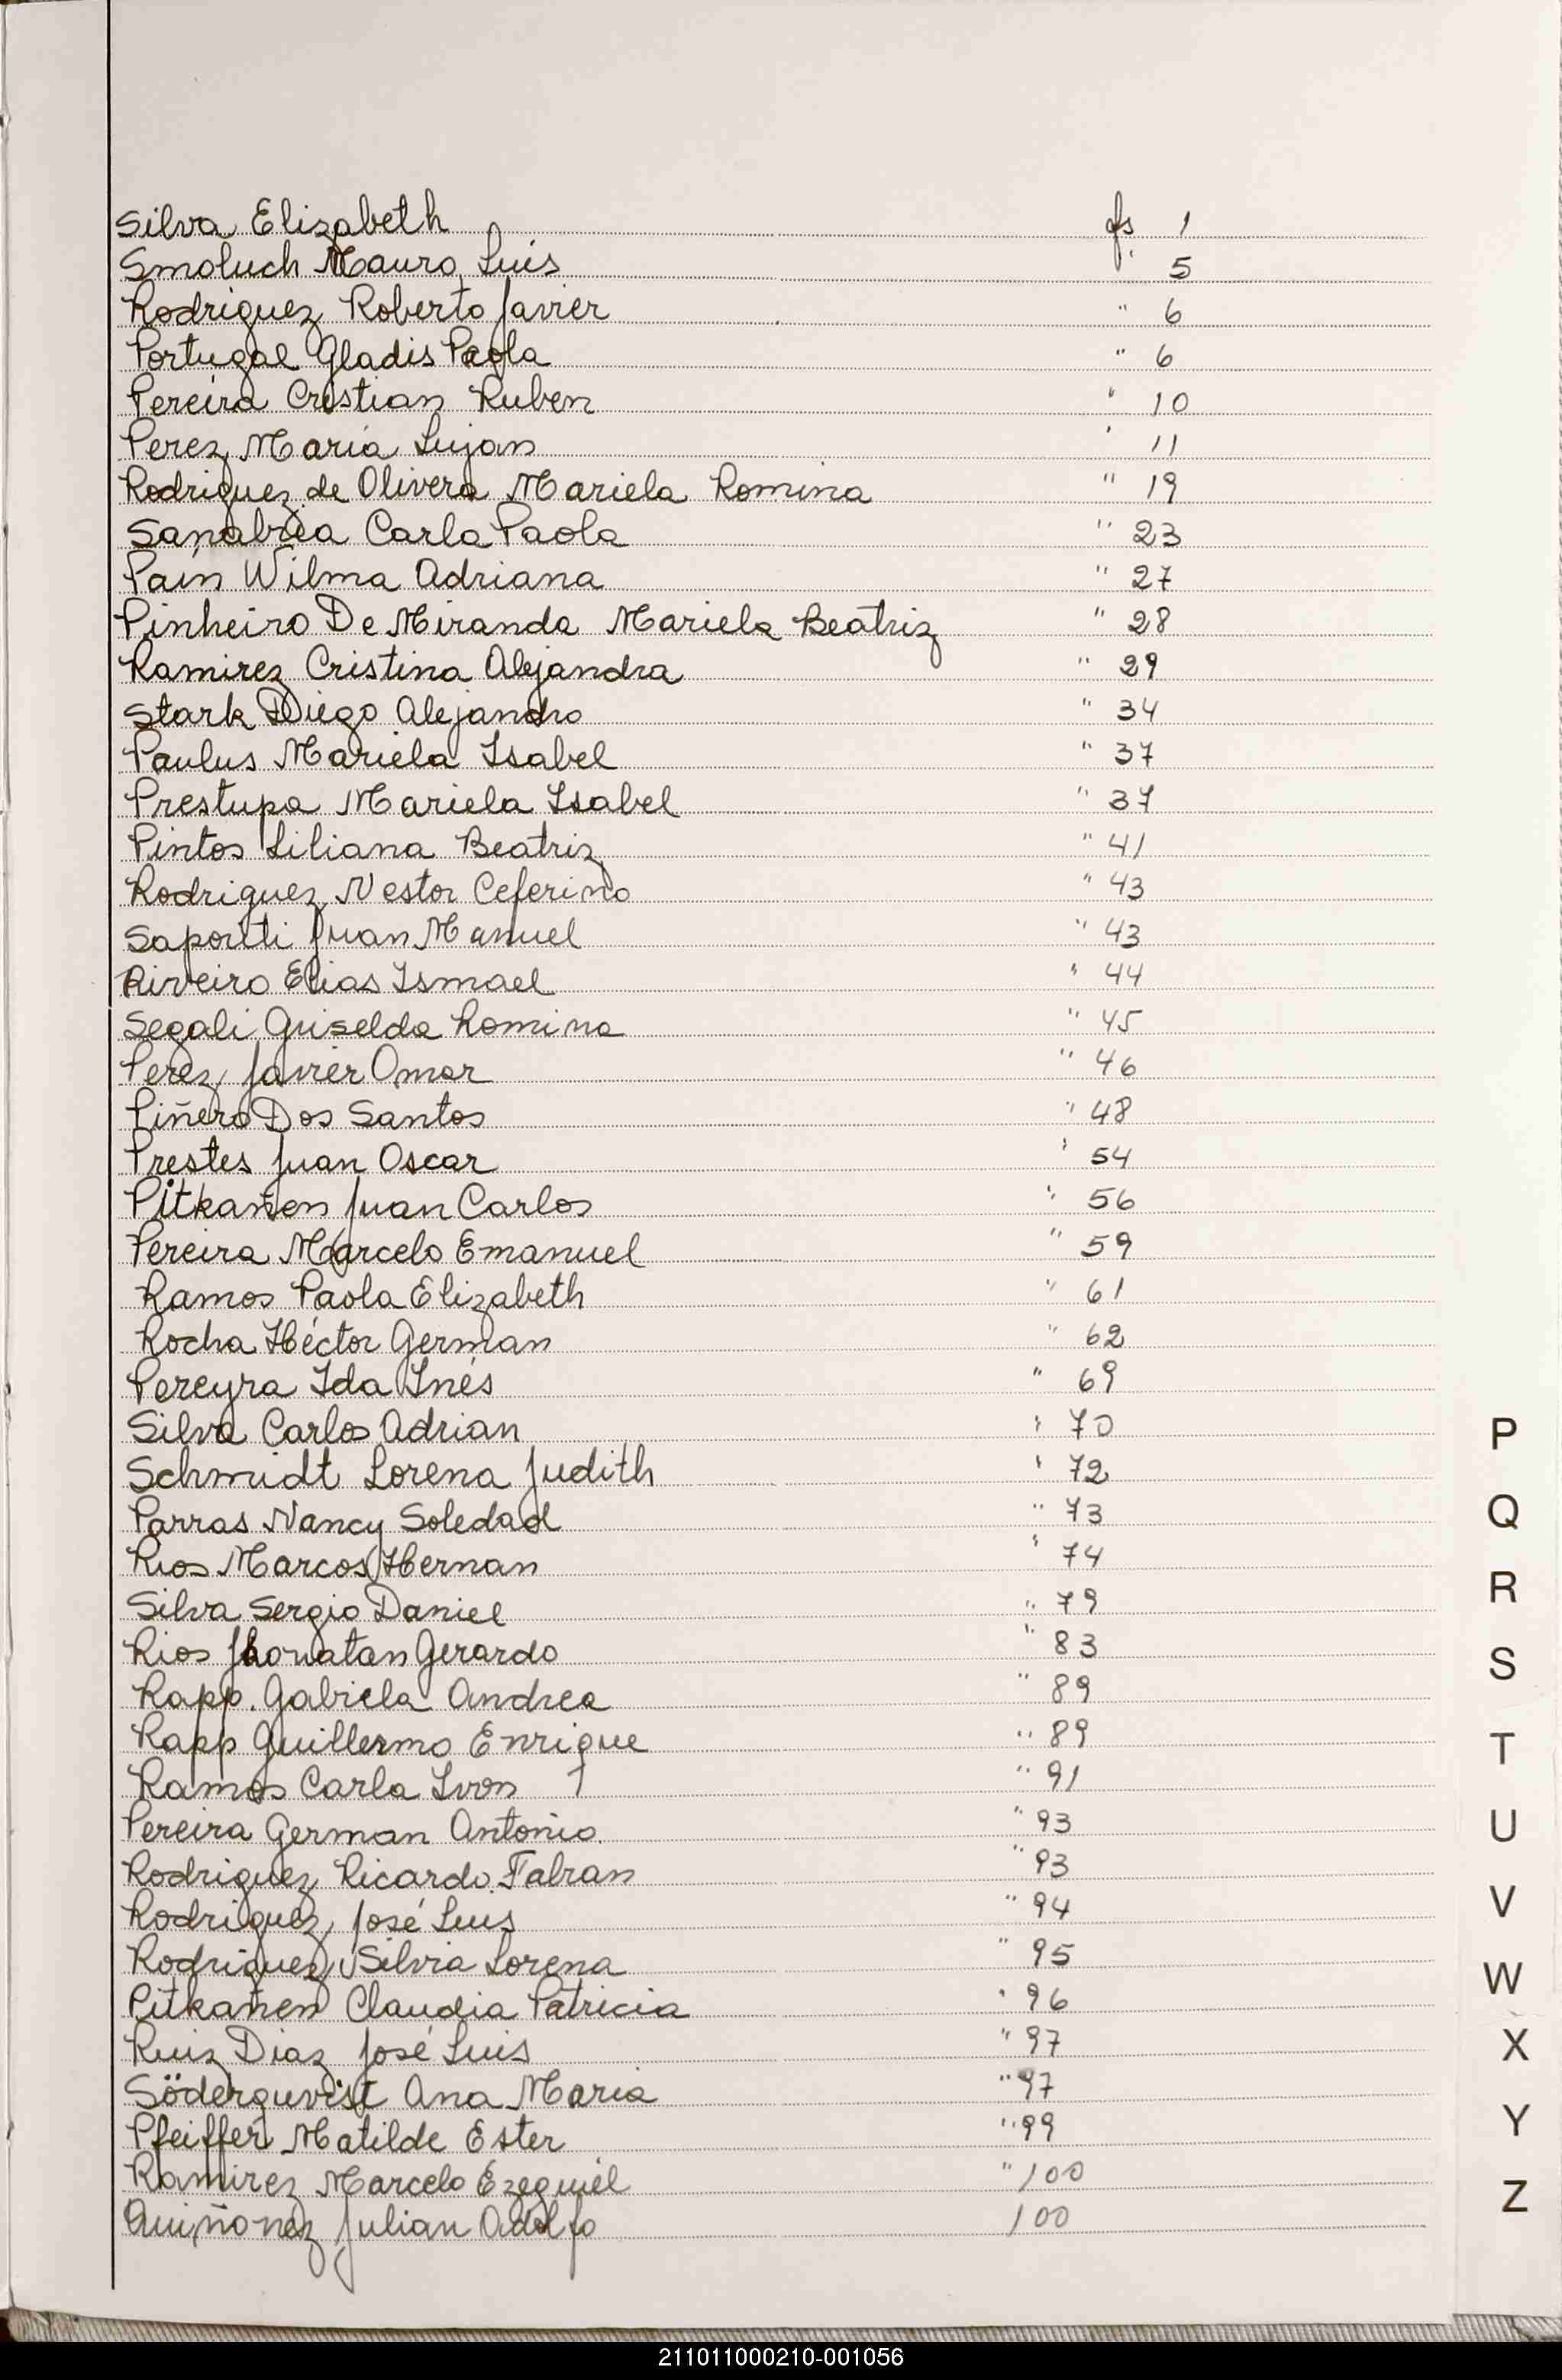 Silva Elizabeth fs 1
Smoluch Mauro Luis " 5
Rodriguez Roberto Javier " 6
Portugal Gladis Paola " 6
Pereira Cristian Ruben " 10
Perez Maria Lujan " 11
Rodriguez de Olivera Mariela Romina " 19
Sanabria Carla Paola " 23
Pain Wilma Adriana " 27
Pinheiro De Miranda Mariela Beatriz " 28
Ramirez Cristina Alejandra " 29
Stark Diego Alejandro " 34
Paulus Mariela Isabel " 37
Prestupa Mariela Isabel " 37
Pintos Liliana Beatriz " 41
Rodriguez Nestor Ceferino " 43
Saporitti Juan Manuel " 43
Riveiro Elias Ismael " 44
Segali Griselda Romina " 45
Perez Javier Omar " 46
Piñero Dos Santos " 48
Prestes Juan Oscar " 54
Pitkanen Juan Carlos " 56
Pereira Marcelo Emanuel " 59
Ramos Paola Elizabeth " 61
Rocha Héctor German " 62
Pereyra Ida Inés " 69
Silva Carlos Adrian " 70
Schmidt Lorena Judith " 72
Parras Nancy Soledad " 73
Rios Marcos Hernan " 74
Silva Sergio Daniel " 79
Rios Jhonatan Gerardo " 83
Rapp. Gabriela Andrea " 89
Rapp Guillermo Enrique " 89
Ramos Carla Ivon " 91
Pereira German Antonio " 93
Rodriguez Ricardo Fabian " 93
Rodriguez José Luis " 94
Rodriguez Silvia Lorena " 95
Pitkanen Claudia Patricia " 96
Ruiz Diaz José Luis " 97
Söderquvist Ana Maria " 97
Pfeiffer Matilde Ester " 99
Ramirez Marcelo Ezequiel " 100
Quiñonez Julian Adolfo 100
P
Q
R
S
T
U
V
W
X
Y
Z
211011000210-001056